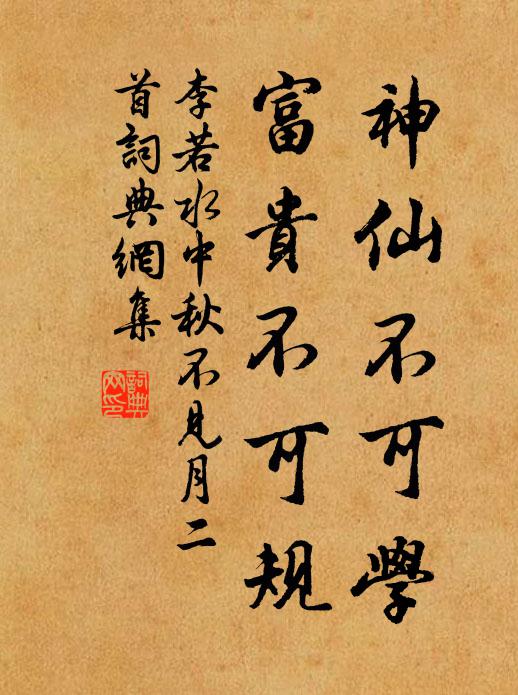 神仙不可學
富貴不可規
李若水中秋不見月二
首詞典網集
詞典
网印